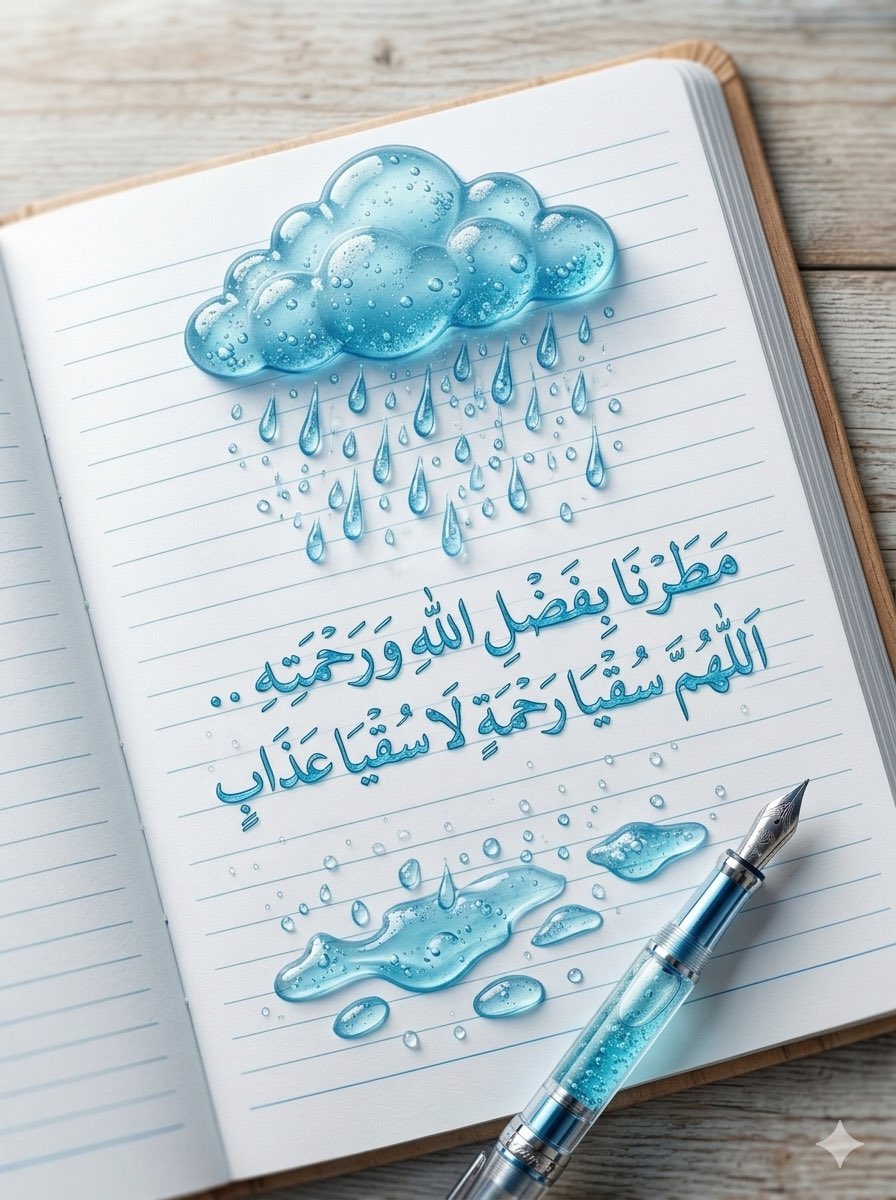 مَطَرْنَا بِفَضْلِ اللهِ وَرَحْمَتِهِ ..
اَللّٰهُمَّ سُقْيَا رَحْمَةٍ لَا سُقْيَا عَذَابٍ